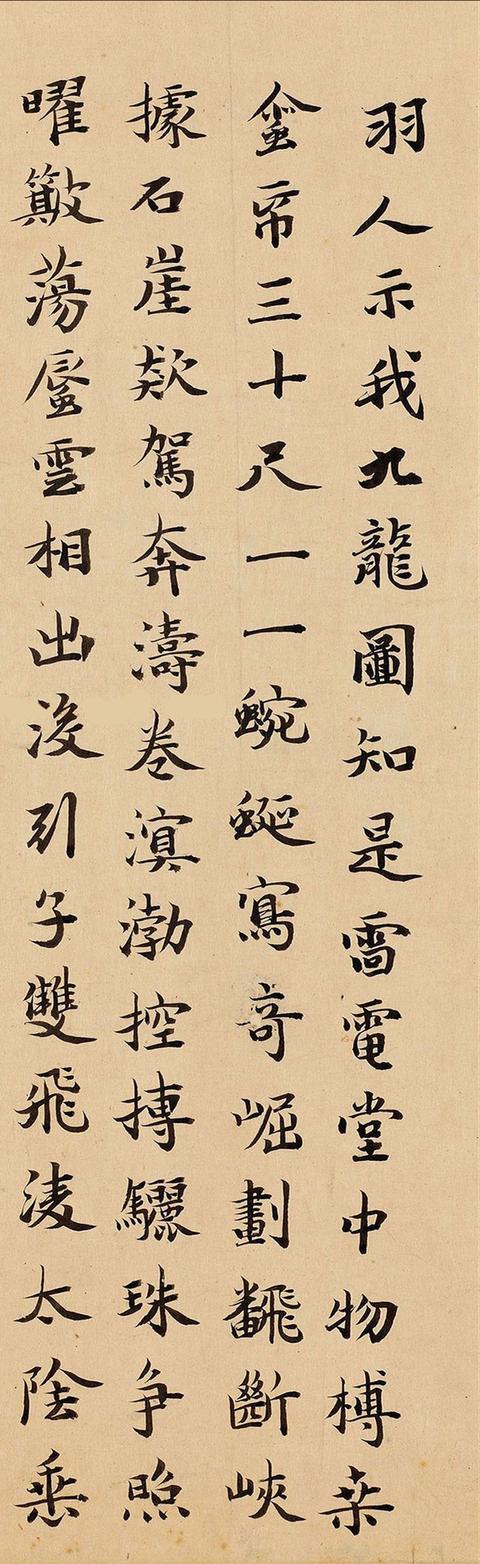 羽人示我九龍圖知是雷電堂中物榑桒
蚕帋三十尺一一蜿蜒寫竒崛劃飜斷峽
據石崖欻駕奔濤卷溟渤控摶驪珠争照
曜簸蕩蜃雲相出没引子雙飛淩太陰